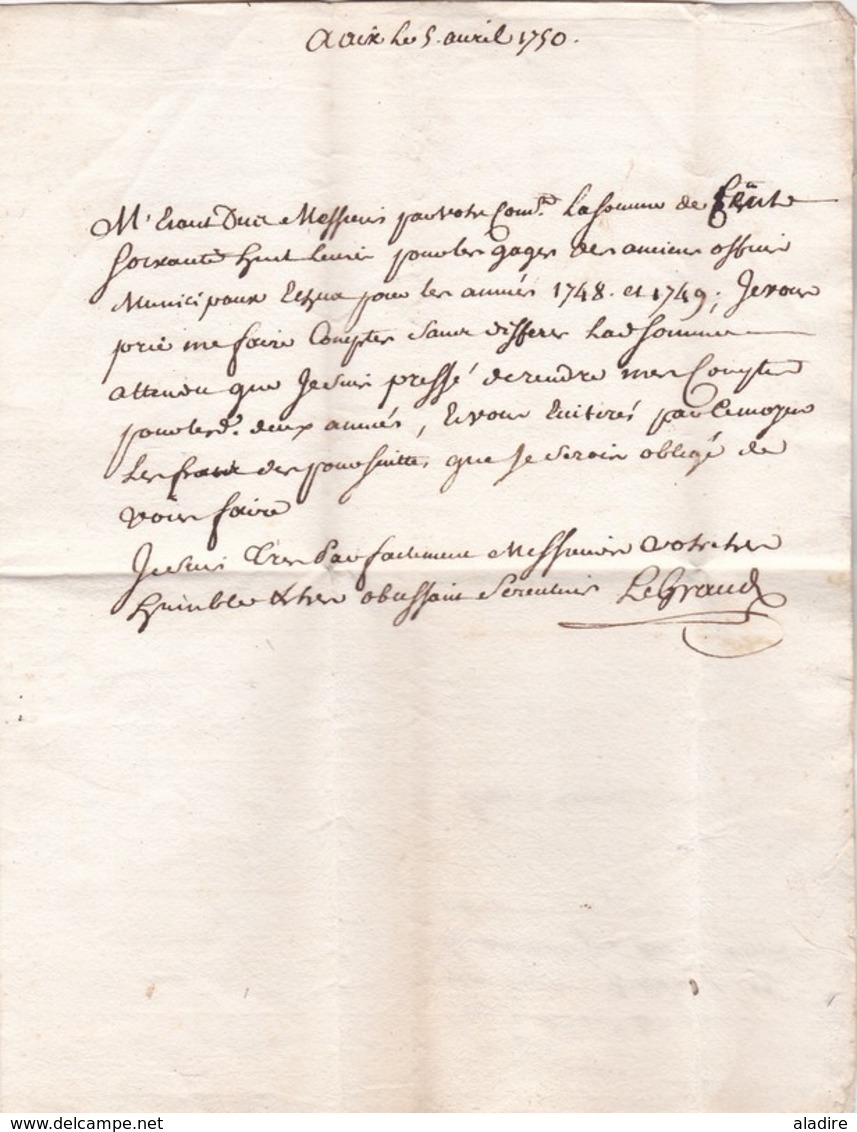 A aix le 5. avril 1750.
M'Etant Dus Messieurs par votre Com.té la somme de Cent
soixante huit livres pour les gages des anciens officiers
Municipaux Echus pour les années 1748. et 1749; Je vous
prie me faire Compter sans differer lad somme
attendu que Je suis pressé de rendre mes Comptes
pour lesd. deux années, Et vous Eviterés par Ce moyen
les frais des poursuittes, que Je serois obligé de
vous faire
Je suis tres parfaitement Messieurs votre tres
humble & tres obeissant serviteur LeGrand
www.delcampe.net
aladire